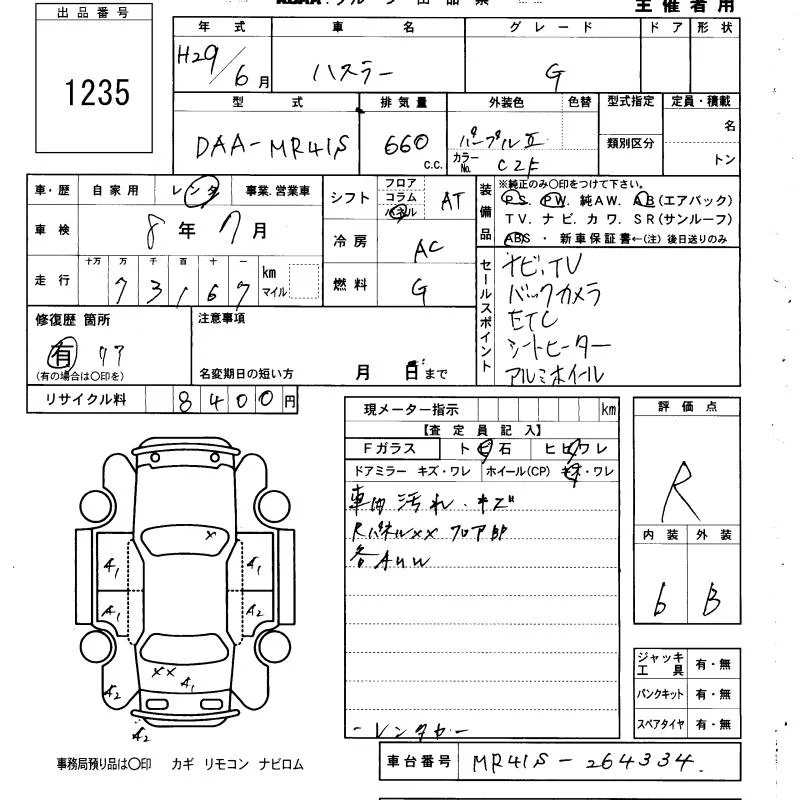 主催者用
出品番号
1235
年式 車名 グレード ドア 形状
H29/6月 ハスラー G
型式 排気量 外装色 色替 型式指定 定員・積載
DAA-MR41S 660 c.c. パープルⅡ 類別区分 名
カラーNo. C2F トン
車・歴 自家用 レンタ 事業.営業車
シフト フロア コラム パネル AT
装備品 ※純正のみ○印をつけて下さい。
PS. PW. 純AW. AB(エアバック)
TV. ナビ. カワ. SR(サンルーフ)
ABS ・ 新車保証書←(注) 後日送りのみ
車検 8年7月
冷房 AC
走行 十万 万 千 百 十 一 km マイル
73167
燃料 G
セールスポイント
ナビ、TV
バックカメラ
ETC
シートヒーター
アルミホイール
修復歴 箇所
有 リア
(有の場合は○印を)
注意事項
名変期日の短い方 月 日まで
リサイクル料 8400円
現メーター指示 km
【査定員記入】
Fガラス トビ石 ヒビワレ
ドアミラー キズ・ワレ ホイール(CP) キズ・ワレ
車内汚れ、キズ
RパネルXX フロア
各AUW
レンタカー
評価点
R
内装 外装
6 B
ジャッキ工具 有・無
パンクキット 有・無
スペアタイヤ 有・無
X
A1 A1
A1 A2
XX
A1
A2
A2
事務局預り品は○印 カギ リモコン ナビロム
車台番号 MR41S-264334